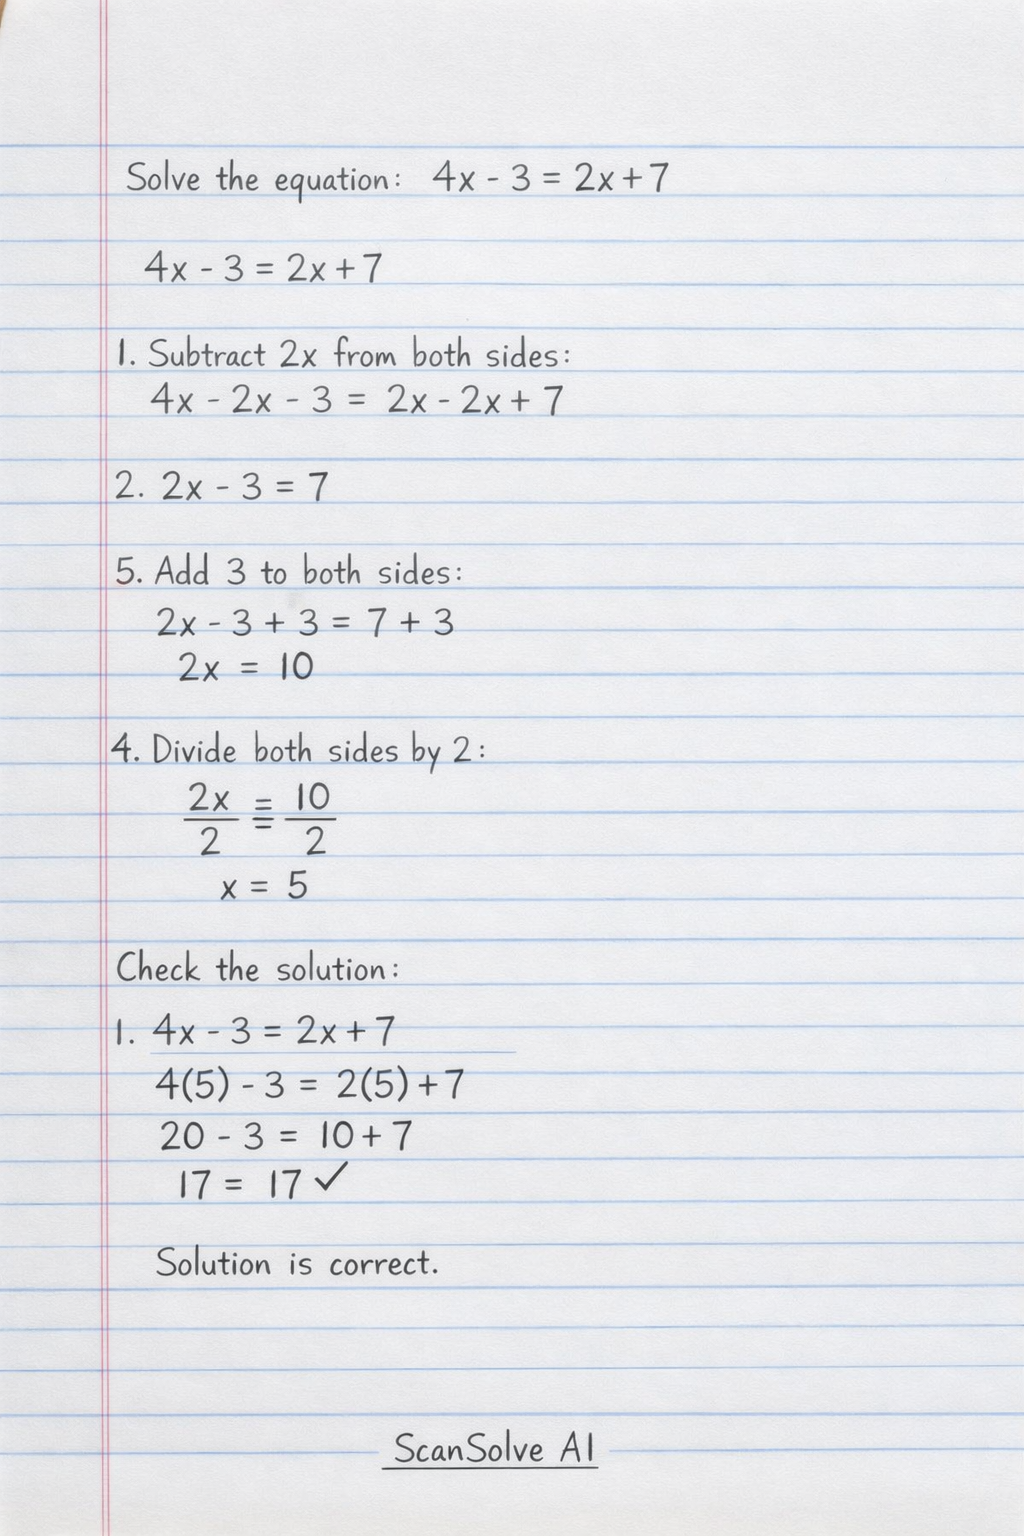 Solve the equation: 4x - 3 = 2x + 7
4x - 3 = 2x + 7
1. Subtract 2x from both sides:
4x - 2x - 3 = 2x - 2x + 7
2. 2x - 3 = 7
5. Add 3 to both sides:
2x - 3 + 3 = 7 + 3
2x = 10
4. Divide both sides by 2:
2x = 10
2 2
x = 5
Check the solution:
1. 4x - 3 = 2x + 7
4(5) - 3 = 2(5) + 7
20 - 3 = 10 + 7
17 = 17 ✓
Solution is correct.
ScanSolve AI